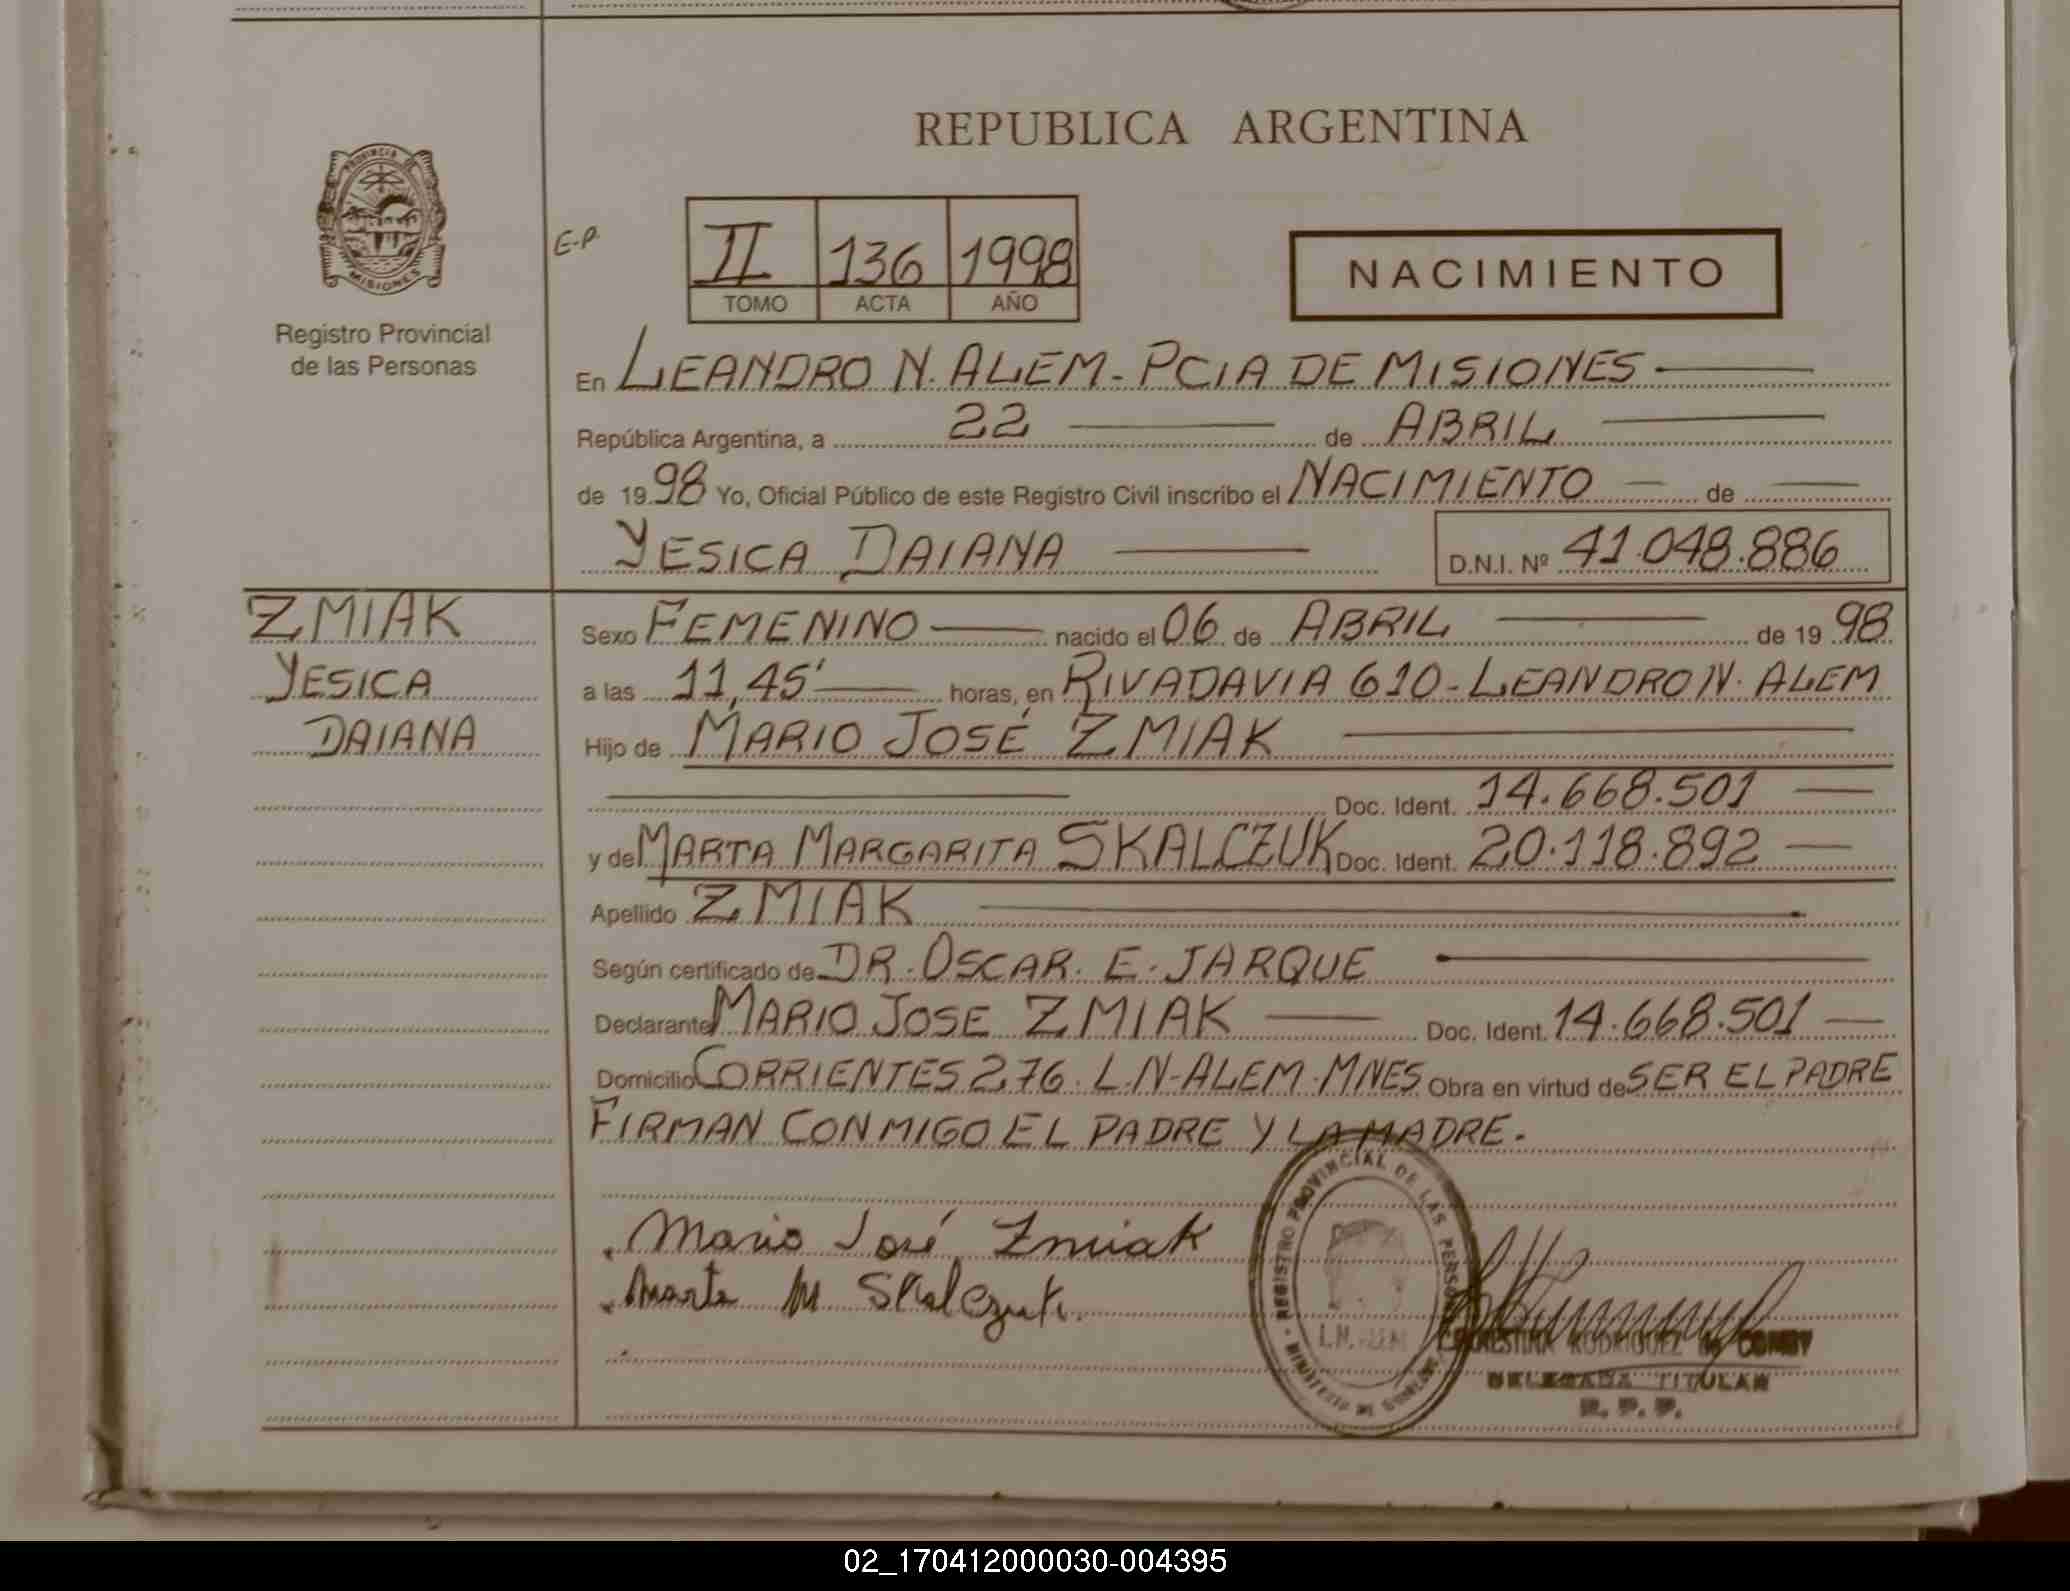 REPUBLICA ARGENTINA
PROVINCIA DE
MISIONES
Registro Provincial
de las Personas
E-P.
II 136 1998
TOMO ACTA AÑO
NACIMIENTO
En LEANDRO N. ALEM - PCIA DE MISIONES
República Argentina, a 22 de ABRIL
de 1998 Yo, Oficial Público de este Registro Civil inscribo el NACIMIENTO de
YESICA DAIANA D.N.I. Nº 41.048.886
ZMIAK
YESICA
DAIANA
Sexo FEMENINO nacido el 06 de ABRIL de 1998
a las 11,45' horas, en RIVADAVIA 610 - LEANDRO N. ALEM
Hijo de MARIO JOSÉ ZMIAK
Doc. Ident. 14.668.501
y de MARTA MARGARITA SKALCZUK Doc. Ident. 20.118.892
Apellido ZMIAK
Según certificado de DR. OSCAR. E. JARQUE
Declarante MARIO JOSE ZMIAK Doc. Ident. 14.668.501
Domicilio CORRIENTES 276. L.N-ALEM. MNES Obra en virtud de SER EL PADRE
FIRMAN CONMIGO EL PADRE Y LA MADRE.
Mario José Zmiak
Marta M Skalczuk.
REGISTRO PROVINCIAL DE LAS PERSONAS
MINISTERIO DE GOBIERNO
L.N. ALEM
ERNESTINA RODRIGUEZ de
DELEGADA TITULAR
R. P. P.
02_170412000030-004395